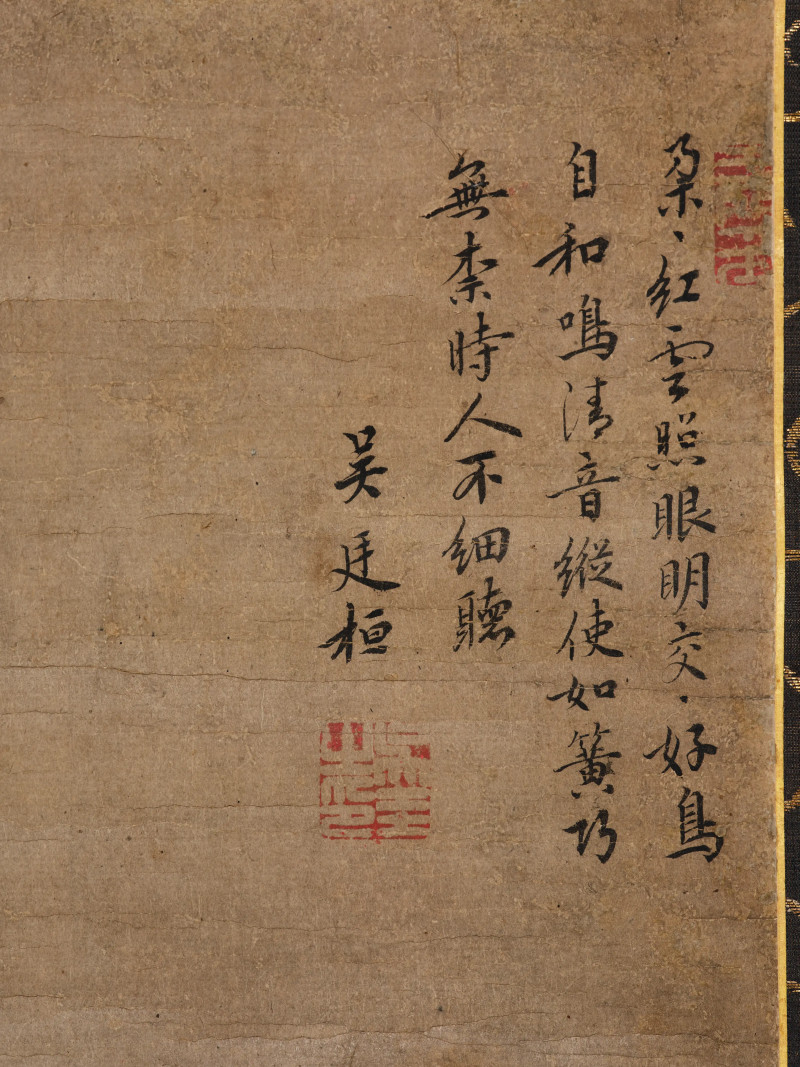 朶〻紅雲照眼明交〻好鳥
自和鳴清音縱使如簧巧
無柰時人不細聽
吳廷桓